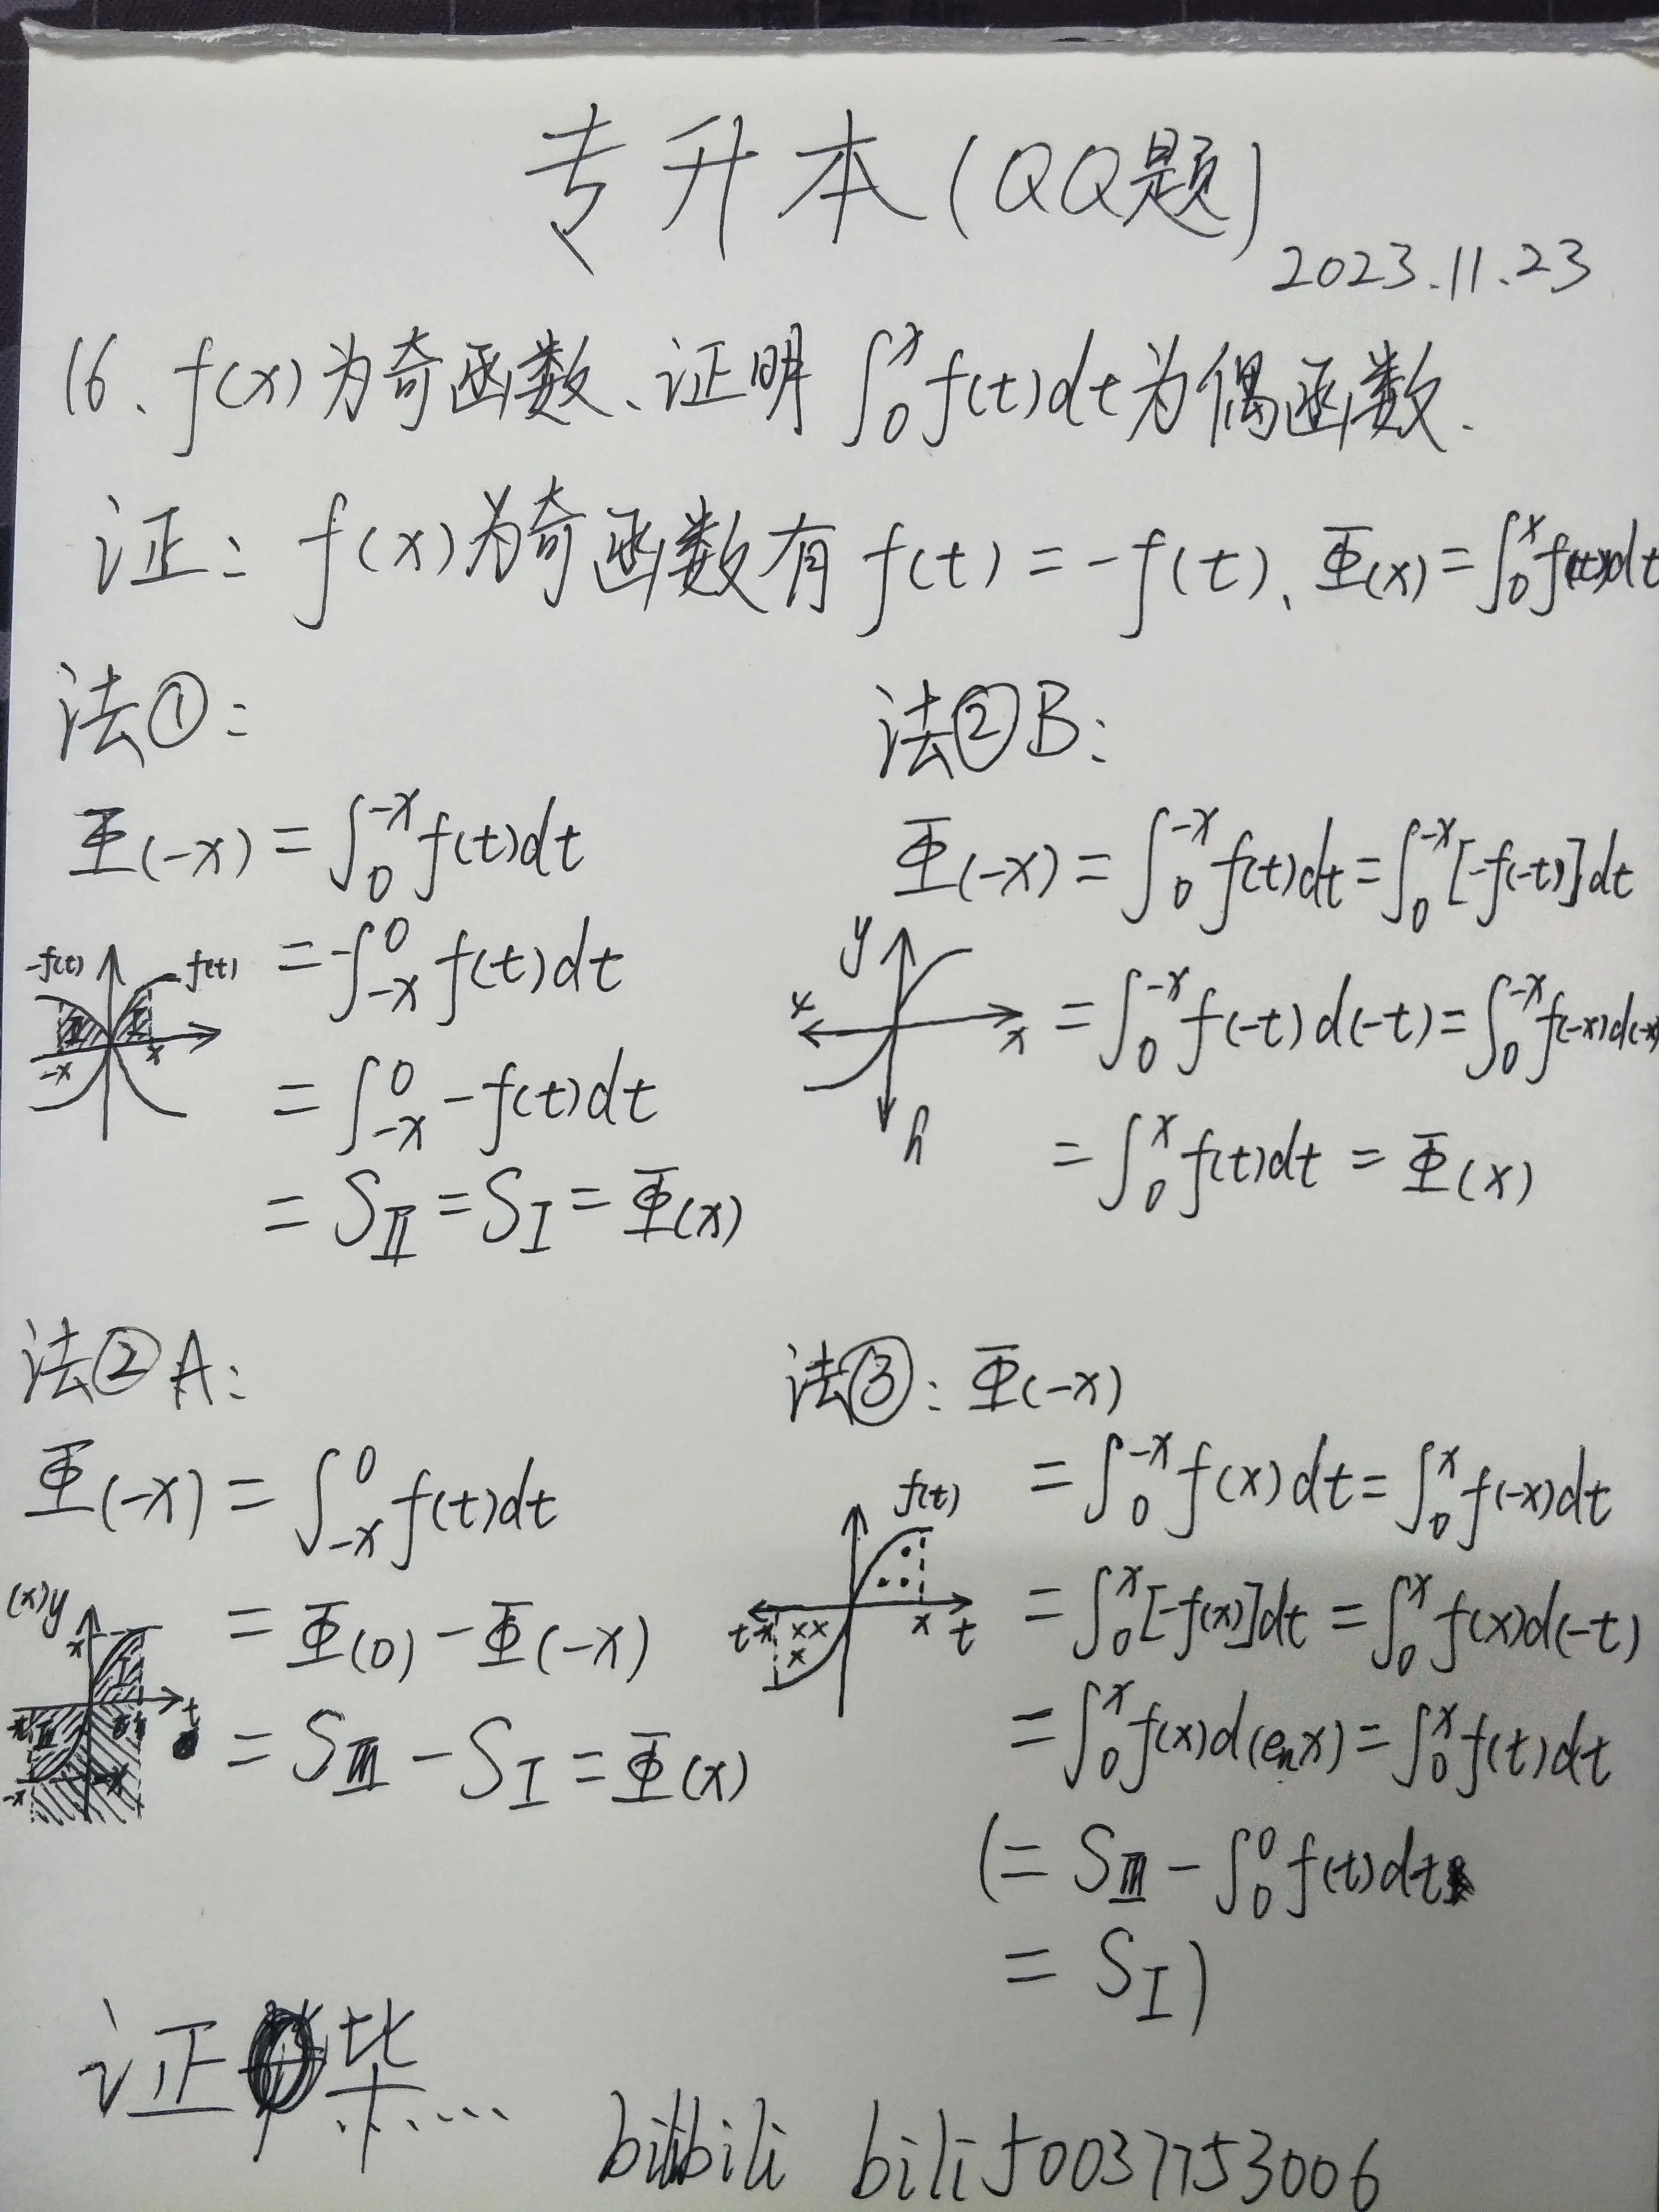 专升本(QQ题)
2023.11.23
16、f(x)为奇函数、证明∫₀ˣf(t)dt为偶函数.
证: f(x)为奇函数有f(t)=-f(t)、Φ(x)=∫₀ˣf(t)dt
法①:
Φ(-x)=∫₀⁻ˣf(t)dt
=-∫₋ₓ⁰f(t)dt
=∫₋ₓ⁰-f(t)dt
=SⅡ=SⅠ=Φ(x)
-f(t) f(t)
Ⅱ Ⅰ
-x x
法②B:
Φ(-x)=∫₀⁻ˣf(t)dt=∫₀⁻ˣ[-f(-t)]dt
=∫₀⁻ˣf(-t)d(-t)=∫₀⁻ˣf(-x)d(-x)
=∫₀ˣf(t)dt=Φ(x)
y
x x
h
法②A:
Φ(-x)=∫₋ₓ⁰f(t)dt
=Φ(0)-Φ(-x)
=SⅢ-SⅠ=Φ(x)
(x)y
x
Ⅰ
t
-x
法③: Φ(-x)
=∫₀⁻ˣf(x)dt=∫₀ˣf(-x)dt
=∫₀ˣ[-f(x)]dt=∫₀ˣf(x)d(-t)
=∫₀ˣf(x)d(eₙx)=∫₀ˣf(t)dt
(=SⅢ-∫₀⁰f(t)dt
=SⅠ)
f(t)
t x t
证毕....
bilibili bili50037753006